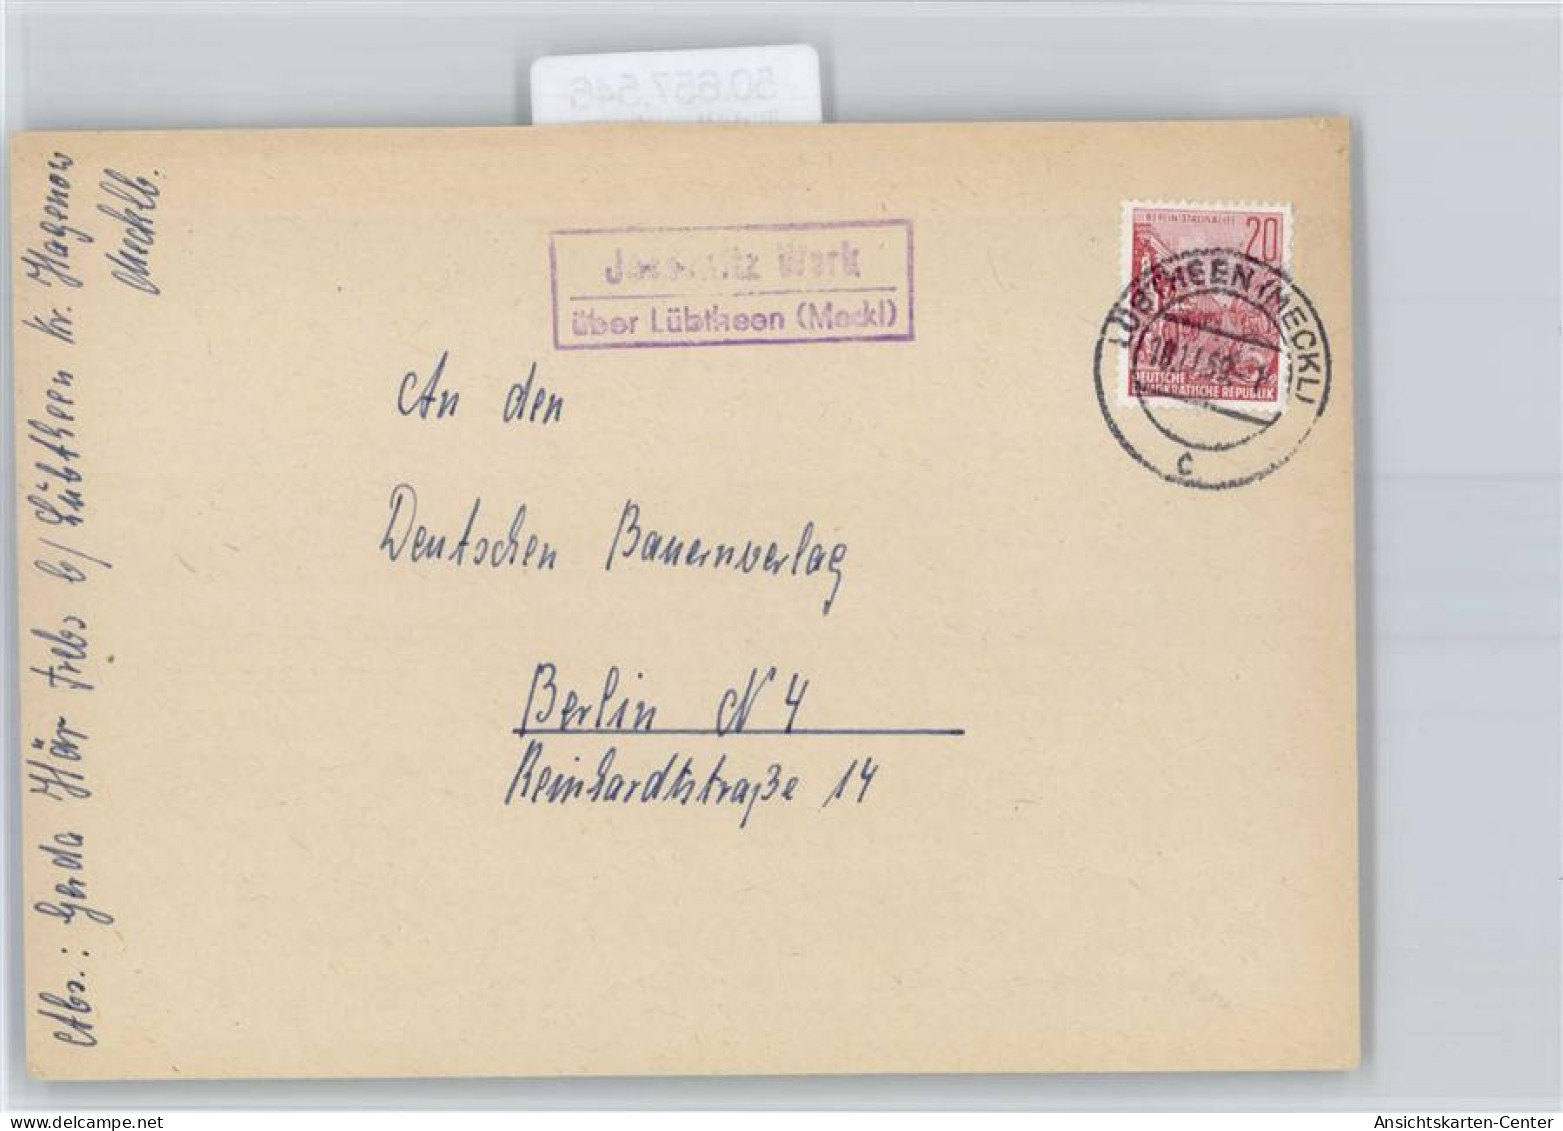 50.657.546
Jessenitz Werk
über Lübtheen (Meckl)
BERLIN STALINALLEE
20
DEUTSCHE
DEMOKRATISCHE REPUBLIK
LÜBTHEEN (MECKL)
c
An den
Deutschen Bauernverlag
Berlin N 4
Reinhardtstraße 14
Abs.: Gerda Här Trebs b/ Lübtheen Kr. Hagenow
Mecklb.
Ansichtskarten-Center